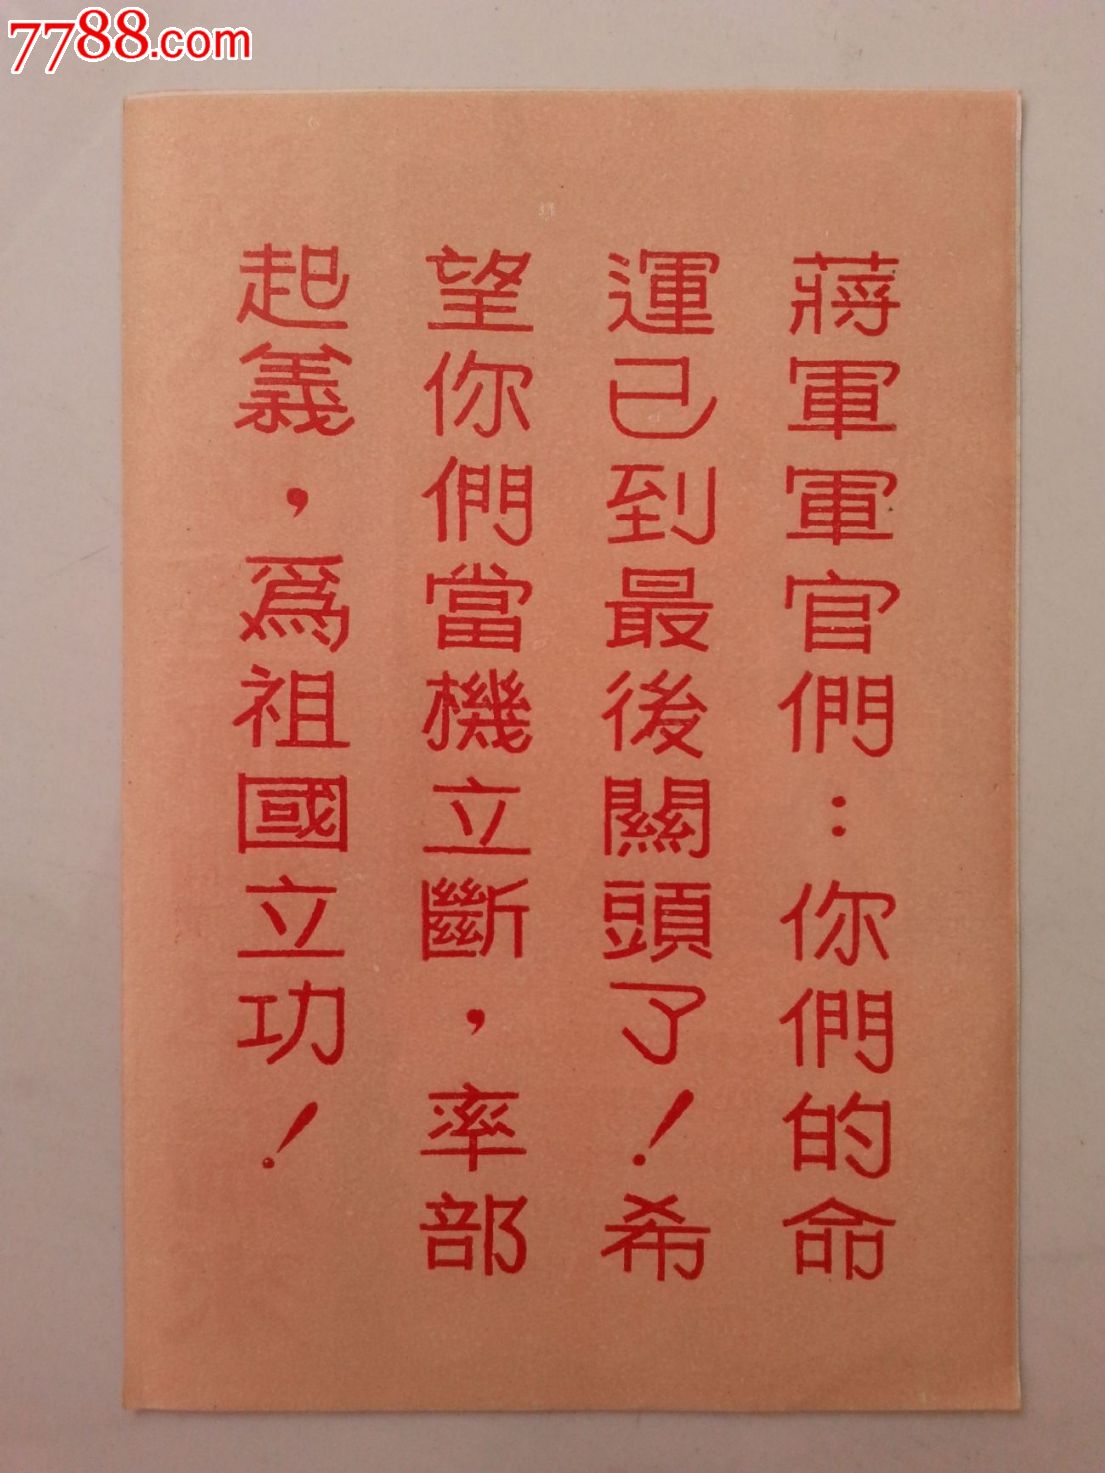 7788.com
蔣軍軍官們：你們的命
運已到最後關頭了！希
望你們當機立斷，率部
起義，爲祖國立功！